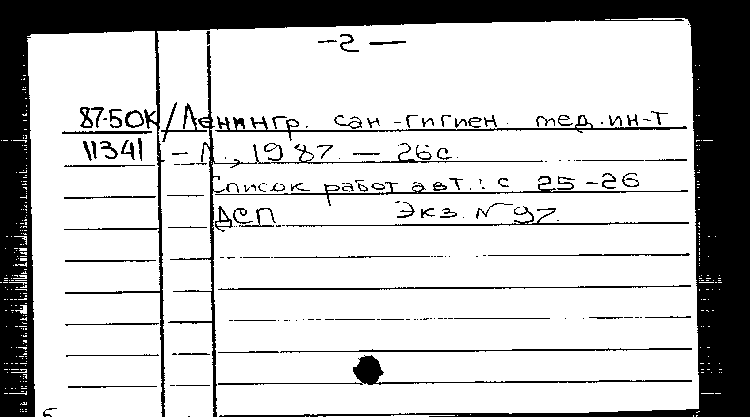 -2-
87-5OK /Ленингр. сан-гигиен. мед.ин-т
11341 .-Л., 1987. - 26с.
Список работ авт.: с 25-26
ДСП Экз. N 97.